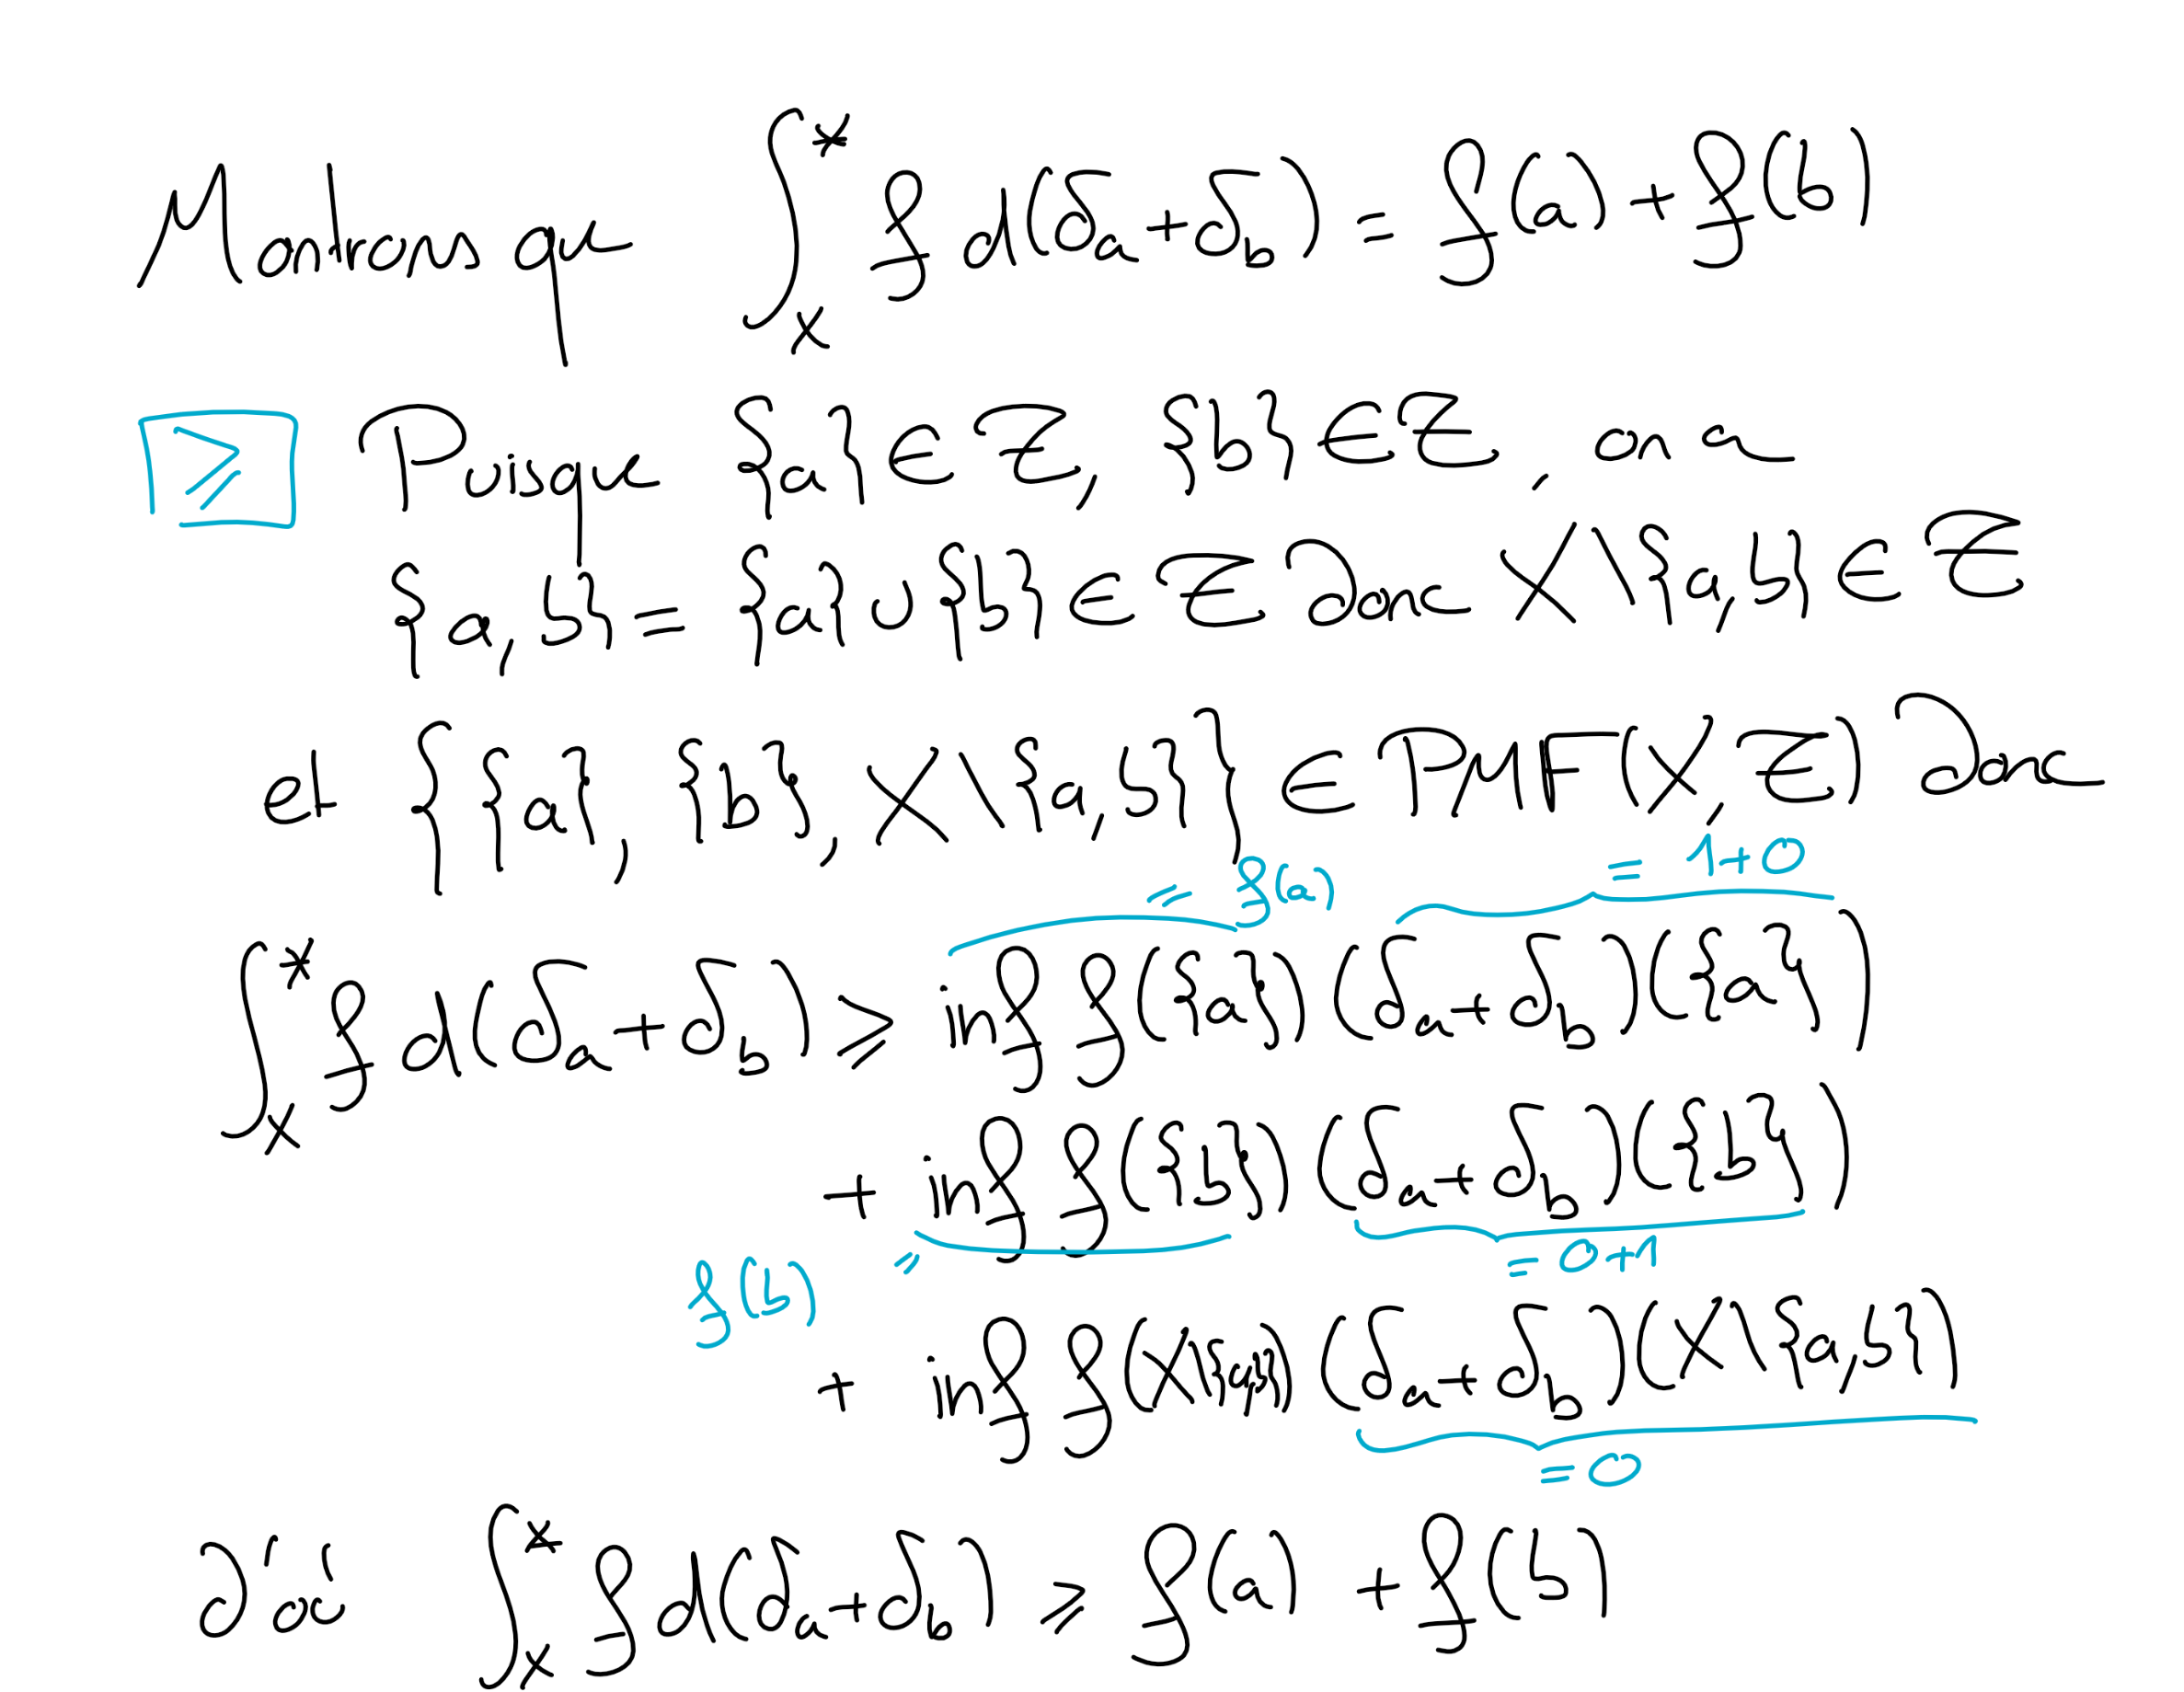 Montrons que ∫_X^* f d(δ_a+δ_b) = f(a) + f(b)
≥ Puisque {a} ∈ Z, {b} ∈ Z, on a
{a,b} = {a} ∪ {b} ∈ Z Donc X\{a,b} ∈ Z
et { {a}, {b}, X\{a,b} } ∈ PMF(X,Z) Donc
= f(a) = 1+0
∫_X^* f d(δ_a+δ_b) ≥ inf f({a}) (δ_a+δ_b)({a})
+ inf f({b}) (δ_a+δ_b)({b})
f(b) = = 0+1
+ inf f(X\{a,b}) (δ_a+δ_b)(X\{a,b})
= 0
D'où ∫_X^* f d(δ_a+δ_b) ≥ f(a) + f(b)